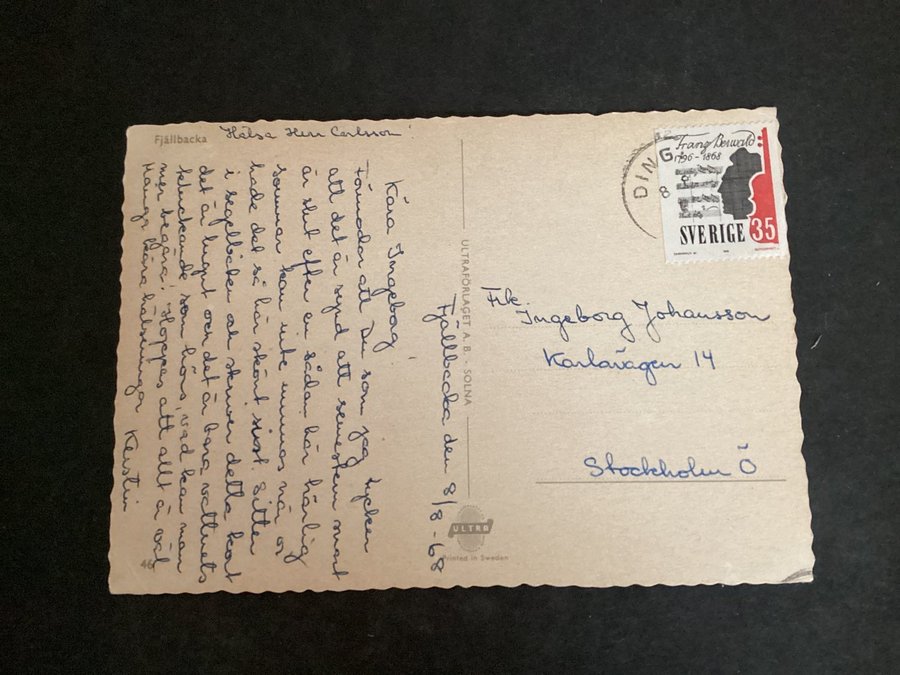 Fjällbacka
Hälsa Herr Carlsson!
Fjällbacka den 8/8-68
Kära Ingeborg
Förmodar att Du som jag tycker
att det är synd att semestern snart
är slut efter en sådan här härlig
sommar. Kan inte minnas när vi
hade det så här skönt sist. Sitter
i segelbåten och skriver detta kort
det är lugnt och det är bara vattnets
kluckande som hörs, vad kan man
mer begära! Hoppas att allt är väl
Många kära hälsningar Kerstin
46
ULTRAFÖRLAGET A. B. SOLNA
ULTRA
Printed in Sweden
DING
8 8
Franz Berwald
1796-1868
SVERIGE 35
Frk.
Ingeborg Johansson
Karlavägen 14
Stockholm Ö